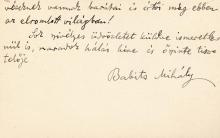 vannak barátai és értői még ebben
az elromlott világban!
Sok szívélyes üdvözletet küldve ismeretle-
nül is, maradok hálás híve és őszinte tisz-
telője
Babits Mihály